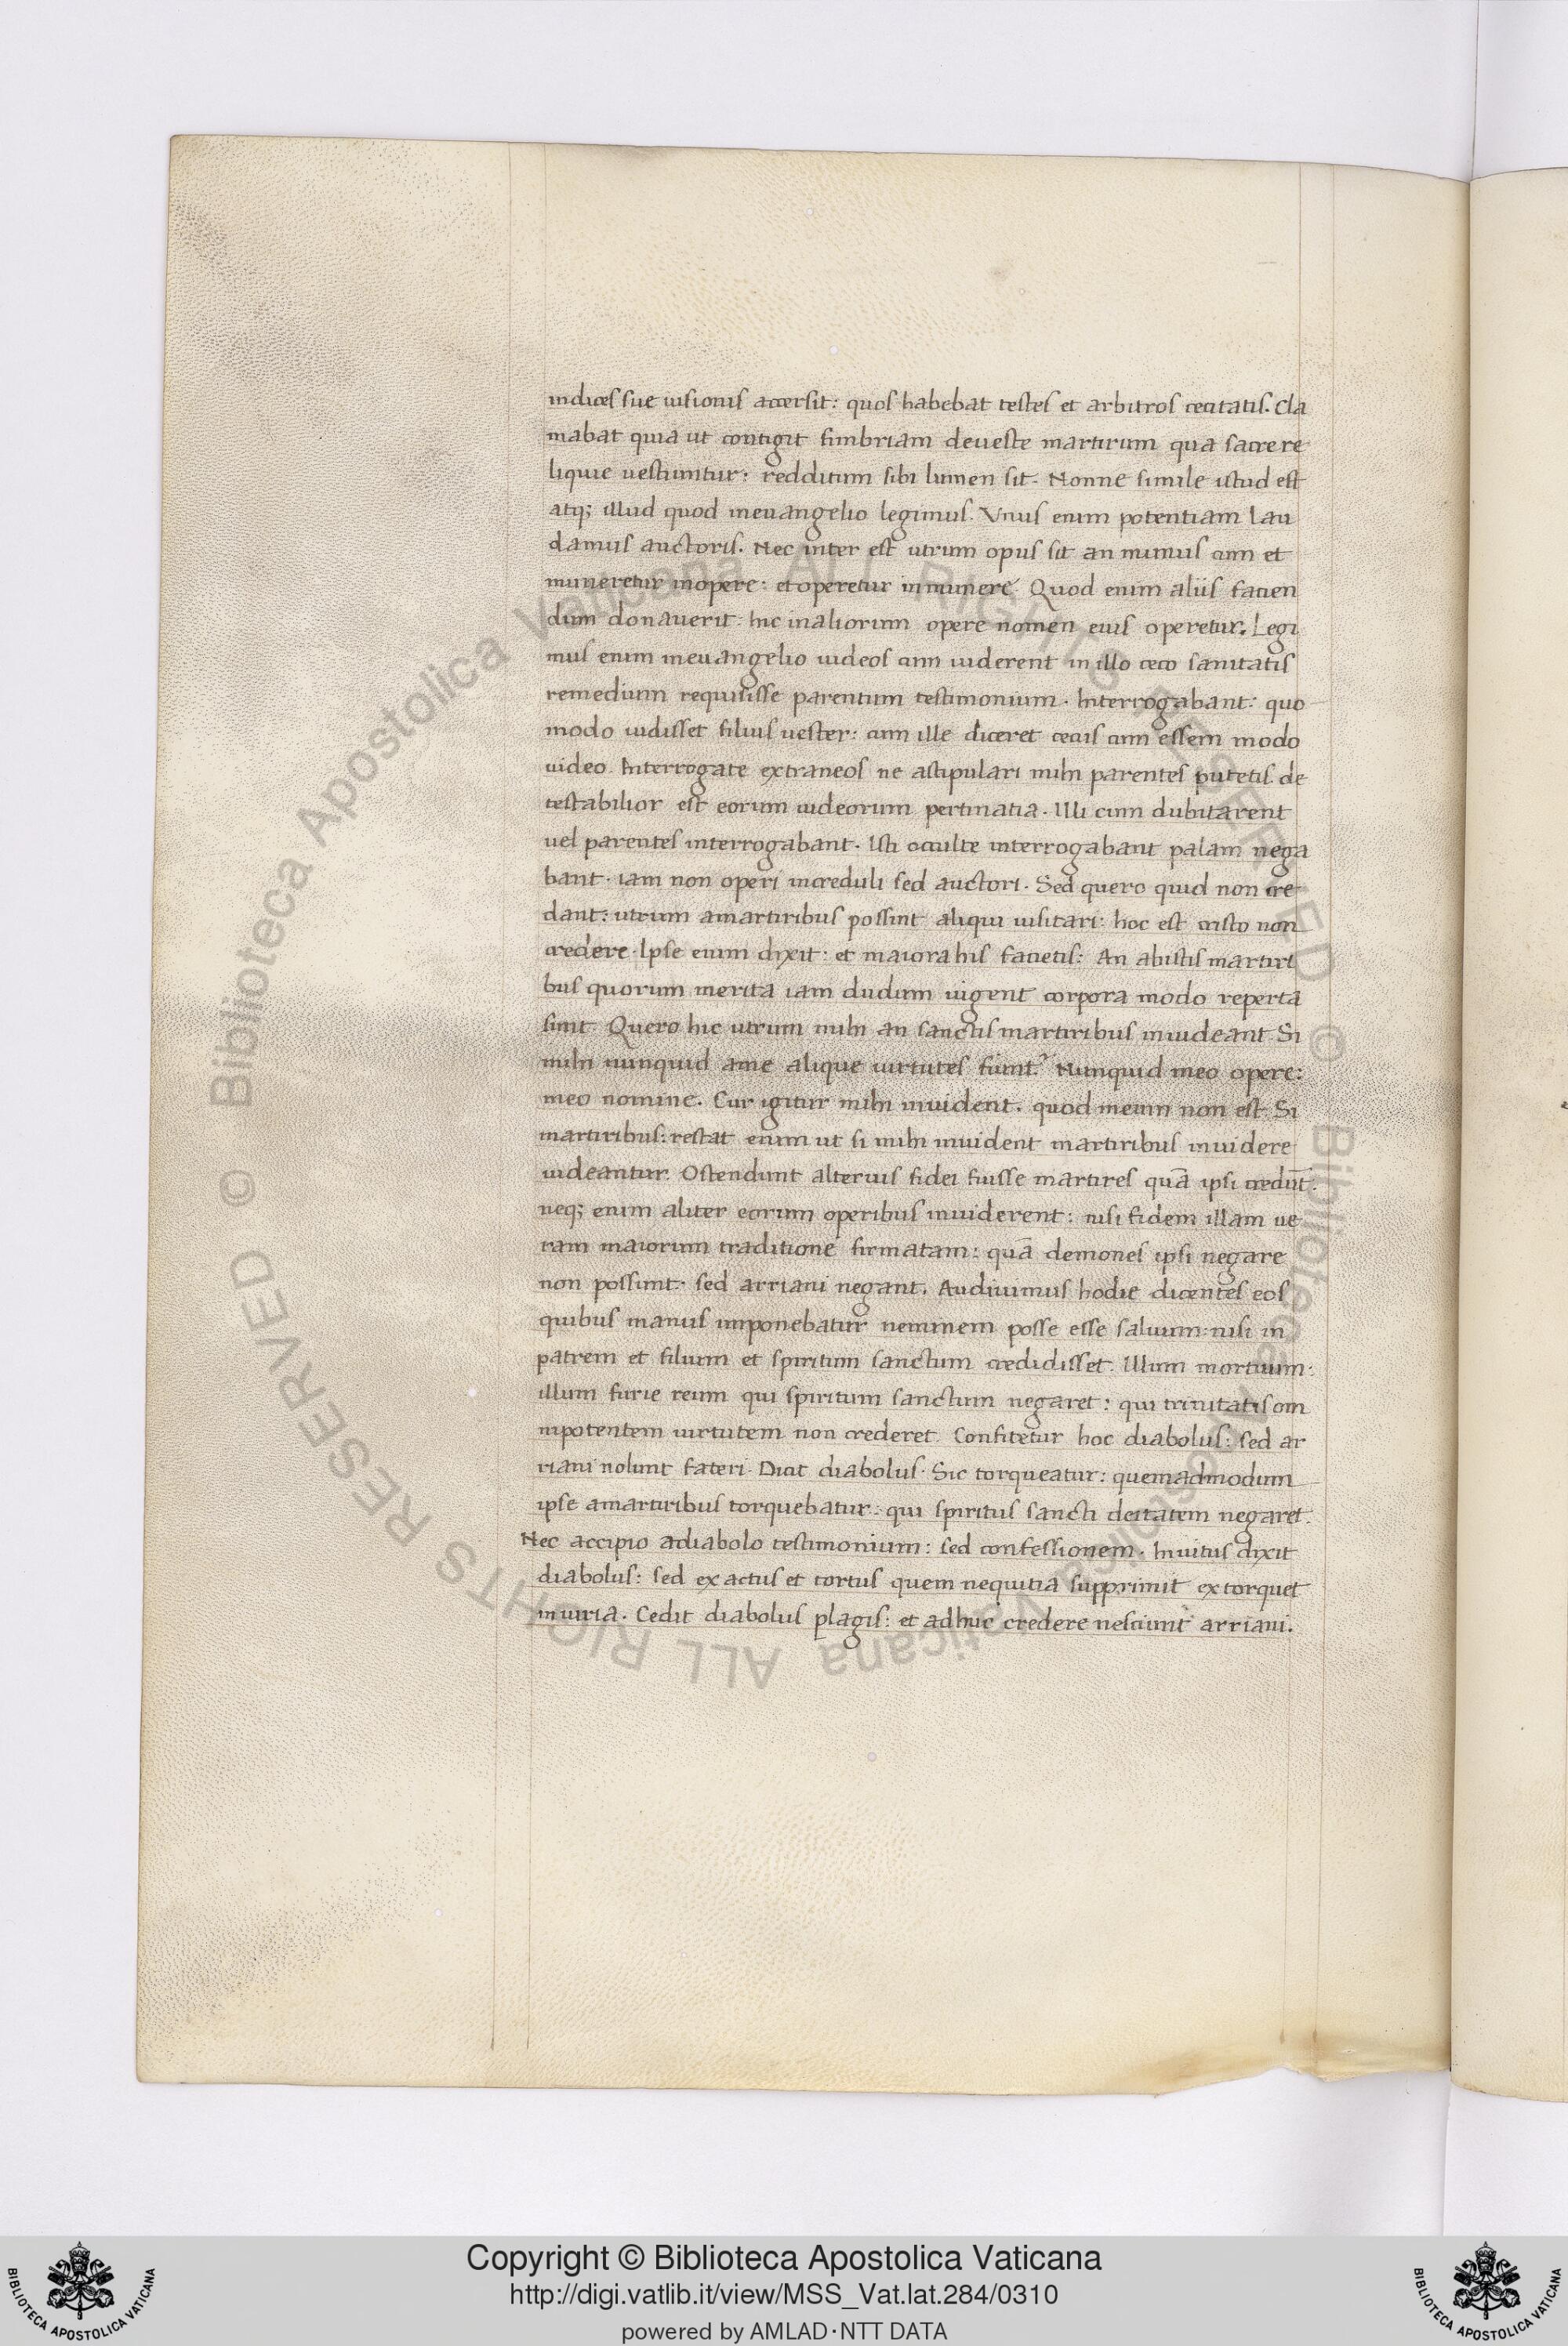 indices sue uisionis accersit: quos habebat testes et arbitros cecitatis. Cla
mabat quia ut contigit fimbriam deueste martirum qua sacre re
liquie uestiuntur: redditum sibi lumen sit. Nonne simile istud est
atq; illud quod ineuangelio legimus. Vnus enim potentiam lau
damus auctoris. Nec inter est utrum opus sit an munus cum et
muneretur inopere: et operetur inmunere. Quod enim aliis facien
dum donauerit: hic inaliorum opere nomen eius operetur. Legi
mus enim ineuangelio iudeos cum uiderent in illo ceco sanitatis
remedium requisisse parentum testimonium. Interrogabant: quo
modo uidisset filius uester: cum ille diceret cecus cum essem modo
uideo. Interrogate extraneos ne astipulari mihi parentes putetis. de
testabilior est eorum iudeorum pertinatia. Illi cum dubitarent
uel parentes interrogabant. Isti occulte interrogabant palam nega
bant. iam non operi increduli sed auctori. Sed quero quid non cre
dant: utrum amartiribus possint aliqui uisitari: hoc est cristo non
credere. Ipse enim dixit: et maiora his facietis: An abistis martiri
bus quorum merita iam dudum uigent corpora modo reperta
sunt. Quero hic utrum mihi an sanctis martiribus inuideant. Si
mihi nunquid ame alique uirtutes fiunt? Nunquid meo opere:
meo nomine. Cur igitur mihi inuident. quod meum non est. Si
martiribus: restat enim ut si mihi inuident martiribus inuidere
uideantur. Ostendunt alterius fidei fuisse martires quā ipsi credūt.
neq; enim aliter eorum operibus inuiderent: nisi fidem illam ue
ram maiorum traditione firmatam: quā demones ipsi negare
non possunt. sed arriani negant. Audiuimus hodie dicentes eos
quibus manus imponebatur neminem posse esse saluum: nisi in
patrem et filium et spiritum sanctum credidisset. Illum mortuum:
illum furie reum qui spiritum sanctum negaret: qui trinitatis om
nipotentem uirtutem non crederet. Confitetur hoc diabolus: sed ar
riani nolunt fateri. Dicit diabolus. Sic torqueatur: quemadmodum
ipse amartiribus torquebatur: qui spiritus sancti deitatem negaret.
Nec accipio adiabolo testimonium: sed confessionem. Inuitus dixit
diabolus: sed exactus et tortus quem nequitia supprimit extorquet
iniuria. Cedit diabolus plagis: et adhuc credere nesciunt arriani.
© Biblioteca Apostolica Vaticana ALL RIGHTS RESERVED © Biblioteca Apostolica Vaticana ALL RIGHTS RESERVED
Copyright © Biblioteca Apostolica Vaticana
http://digi.vatlib.it/view/MSS_Vat.lat.284/0310
powered by AMLAD·NTT DATA
BIBLIOTECA APOSTOLICA VATICANA
BIBLIOTECA APOSTOLICA VATICANA